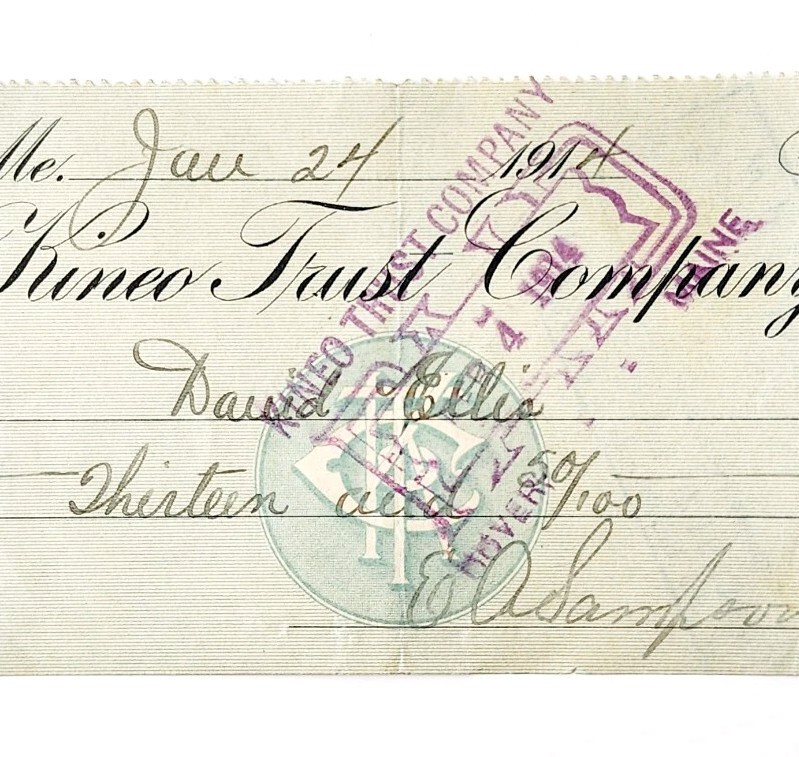 Me. Jan 24 1914
Kineo Trust Company
David Ellis
Thirteen and 50/100
E A Sampson
KINEO TRUST COMPANY
4 1914
DOVER
MAINE